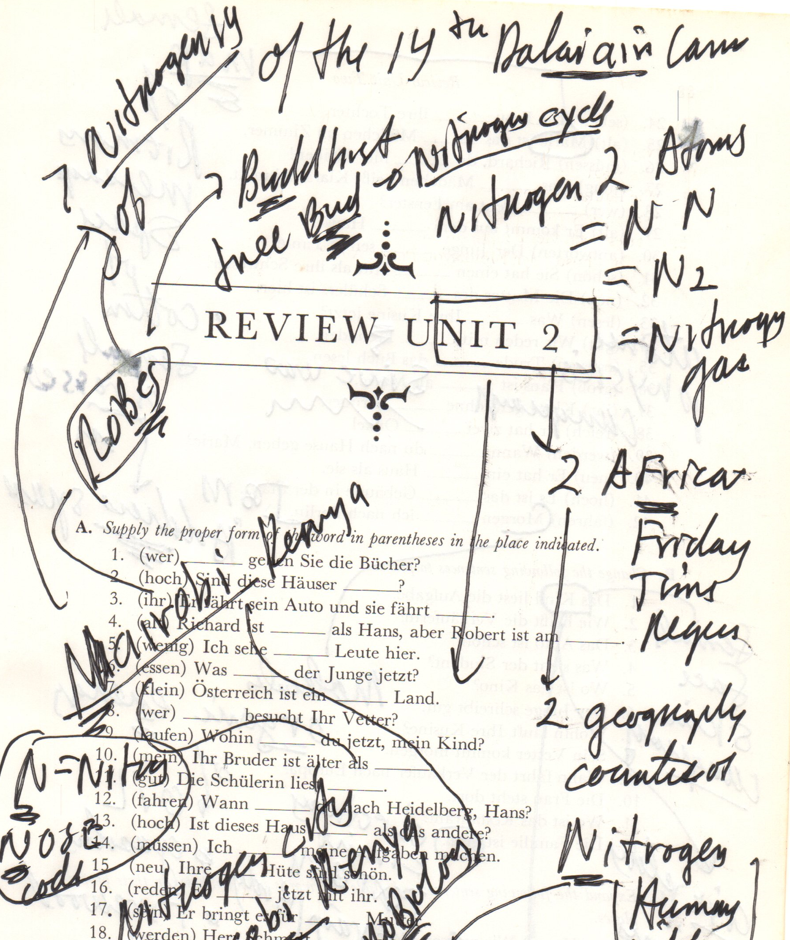 Nitrogen 14
of the 14th
Job
Buddhist → Nitrogen cycle
Bud
Nitrogen 2 Atoms
= N N
= N2
= Nitrogen
gas
REVIEW UNIT 2
Robes
2 Africa
Friday
Times
2 geography
A. Supply the proper form of the word in parentheses in the place indicated.
1. (wer) ______ gehen Sie die Bücher?
2. (hoch) Sind diese Häuser ______?
3. (ihr) Er fährt sein Auto und sie fährt ______
4. (alt) Richard ist ______ als Hans, aber Robert ist am ______.
5. (wenig) Ich sehe ______ Leute hier.
6. (essen) Was ______ der Junge jetzt?
7. (klein) Österreich ist ein ______ Land.
8. (wer) ______ besucht Ihr Vetter?
9. (laufen) Wohin ______ du jetzt, mein Kind?
10. (mein) Ihr Bruder ist älter als ______
11. (gut) Die Schülerin liest ______.
12. (fahren) Wann ______ nach Heidelberg, Hans?
13. (hoch) Ist dieses Haus ______ als das andere?
14. (müssen) Ich ______ meine Aufgaben machen.
15. (neu) Ihre ______ Hüte sind schön.
16. (reden) ______ jetzt mit ihr.
17. (sein) Er bringt es für ______
18. (werden) Herr
Nairobi Kenya
N = Nitro
Nose
code
Nitrogen City
Kenya
Nitrogen
Human